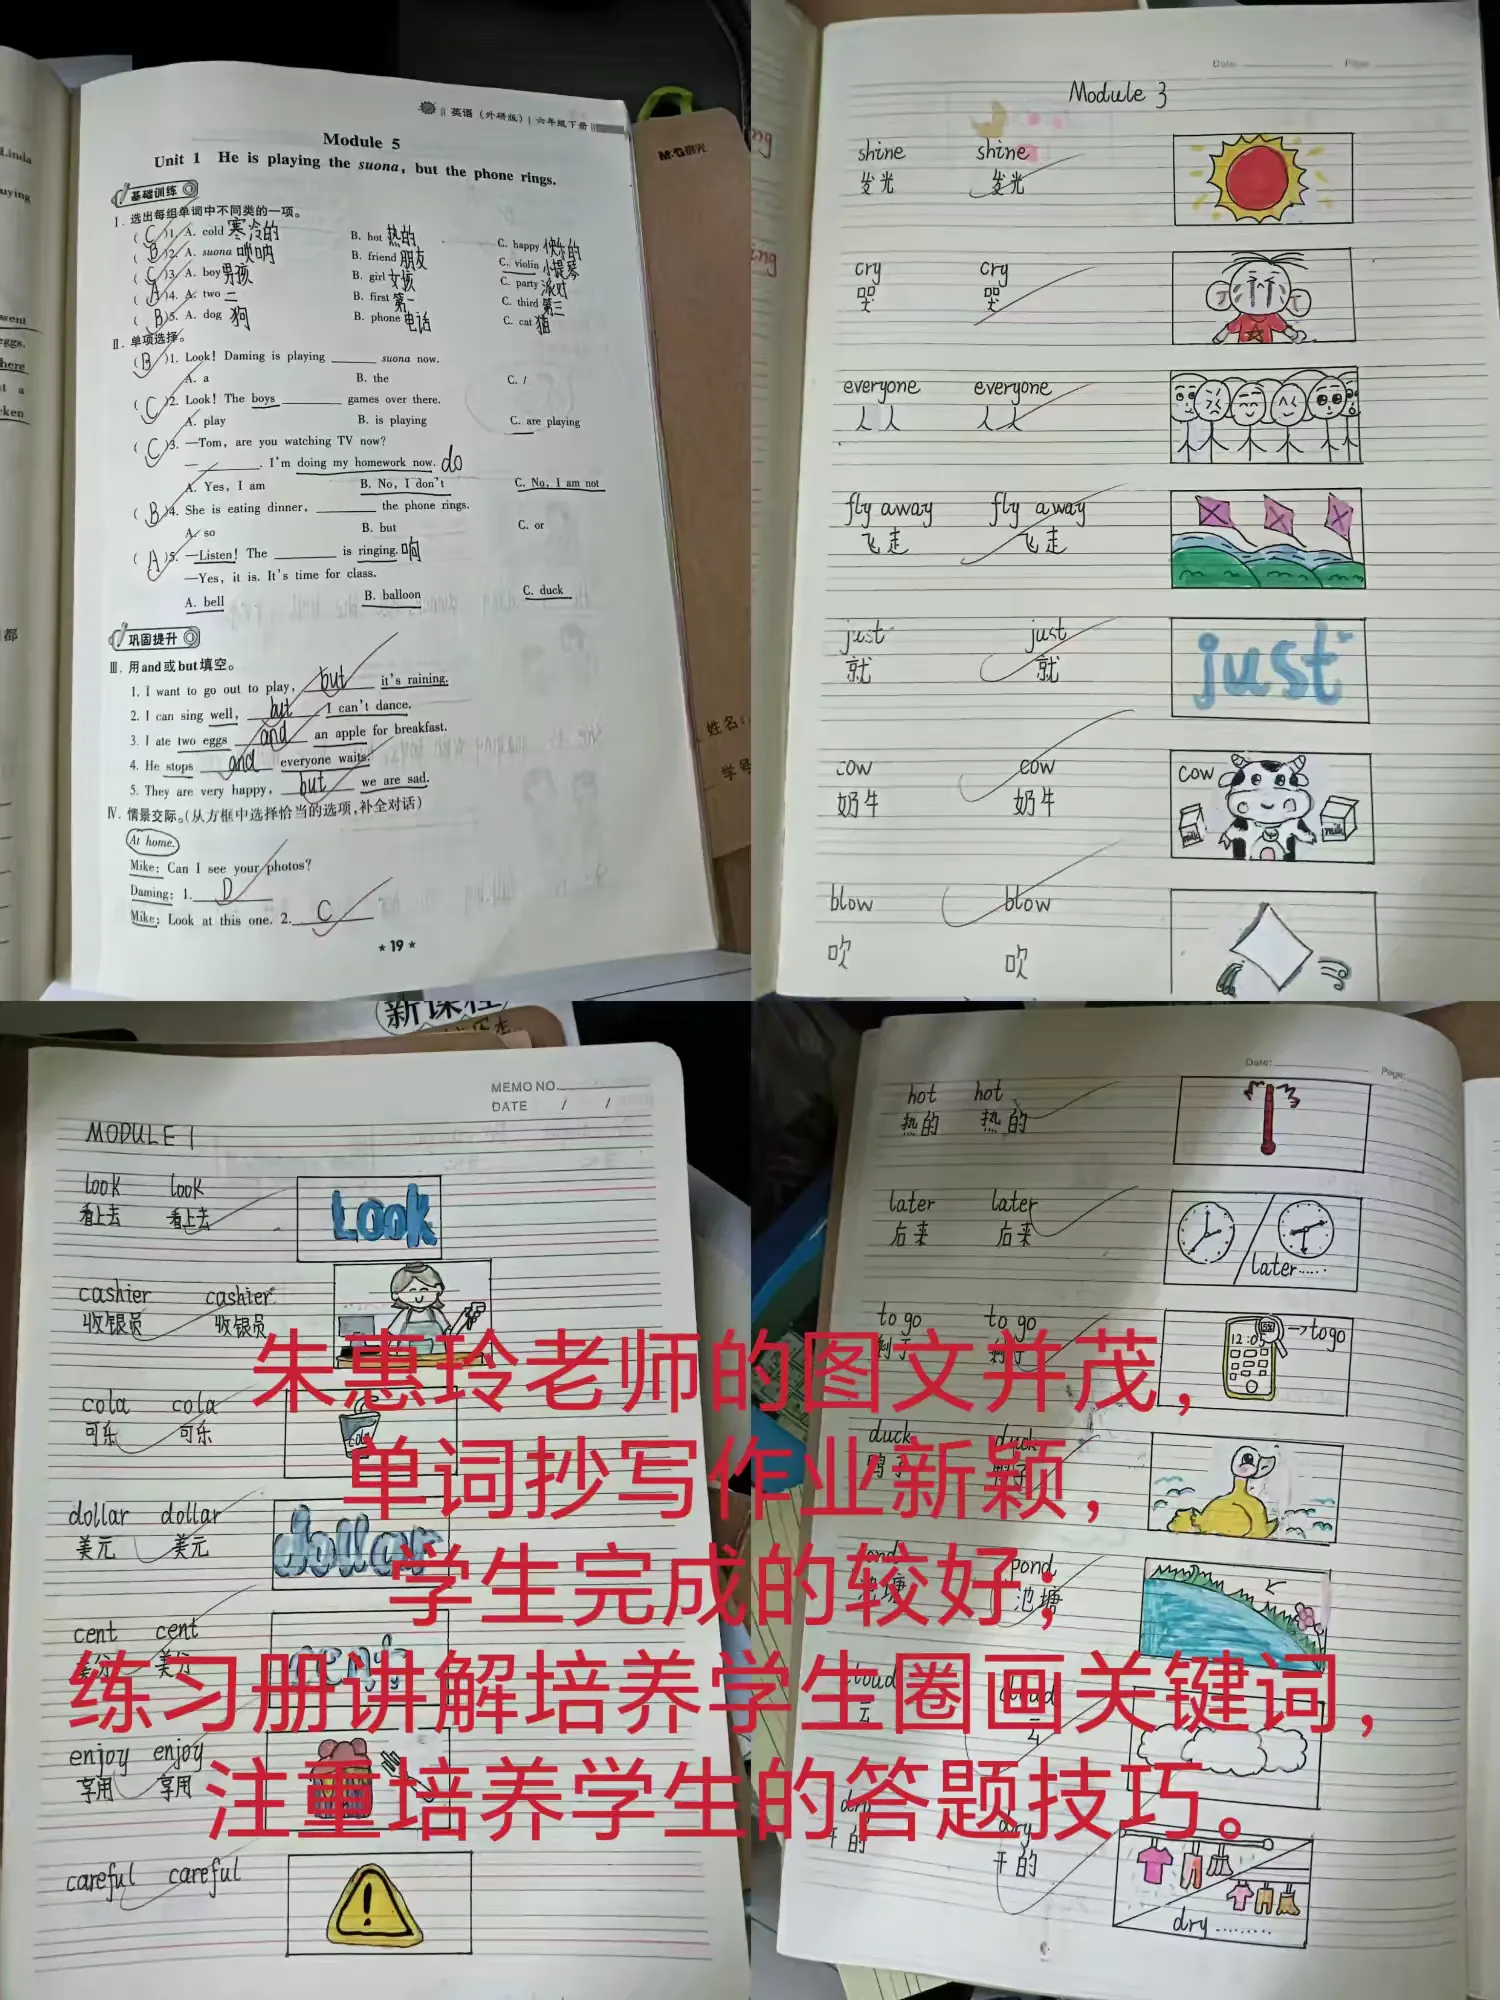 英语（外研版）| 六年级下册
Module 5
Unit 1 He is playing the suona, but the phone rings.
基础训练
Ⅰ. 选出每组单词中不同类的一项。
( C )1. A. cold 寒冷的 B. hot 热的 C. happy 快乐的
( B )2. A. suona 唢呐 B. friend 朋友 C. violin 小提琴
( C )3. A. boy 男孩 B. girl 女孩 C. party 派对
( A )4. A. two 二 B. first 第一 C. third 第三
( B )5. A. dog 狗 B. phone 电话 C. cat 猫
Ⅱ. 单项选择。
( B )1. Look! Daming is playing ______ suona now.
A. a B. the C. /
( C )2. Look! The boys ______ games over there.
A. play B. is playing C. are playing
( C )3. —Tom, are you watching TV now?
—______. I'm doing my homework now. do
A. Yes, I am B. No, I don't C. No, I am not
( B )4. She is eating dinner, ______ the phone rings.
A. so B. but C. or
( A )5. —Listen! The ______ is ringing. 响
—Yes, it is. It's time for class.
A. bell B. balloon C. duck
巩固提升
Ⅲ. 用and或but填空。
1. I want to go out to play, but it's raining.
2. I can sing well, but I can't dance.
3. I ate two eggs and an apple for breakfast.
4. He stops and everyone waits.
5. They are very happy, but we are sad.
Ⅳ. 情景交际。(从方框中选择恰当的选项,补全对话)
At home.
Mike: Can I see your photos?
Daming: 1. D
Mike: Look at this one. 2. C
★ 19 ★
Linda
uying
went
eggs.
here
t a
ken
都
M&G晨光
姓名:
学号
Date: Page:
Module 3
shine shine
发光 发光
cry cry
哭 哭
everyone everyone
人人 人人
fly away fly away
飞走 飞走
just just
就 就
just
cow cow
奶牛 奶牛
cow
milk milk
blow blow
吹 吹
新课程
MEMO NO.
DATE / /
MODULE 1
look look
看上去 看上去
Look
cashier cashier
收银员 收银员
cola cola
可乐 可乐
cola
dollar dollar
美元 美元
dollar
cent cent
美分 美分
enjoy enjoy
享用 享用
careful careful
!
Date: Page:
hot hot
热的 热的
later later
后来 后来
later......
to go to go
→to go
duck duck
鸭子 鸭子
pond
池塘 池塘
cloud cloud
云 云
dry dry
干的 干的
dry ........
朱惠玲老师的图文并茂，
单词抄写作业新颖，
学生完成的较好；
练习册讲解培养学生圈画关键词，
注重培养学生的答题技巧。